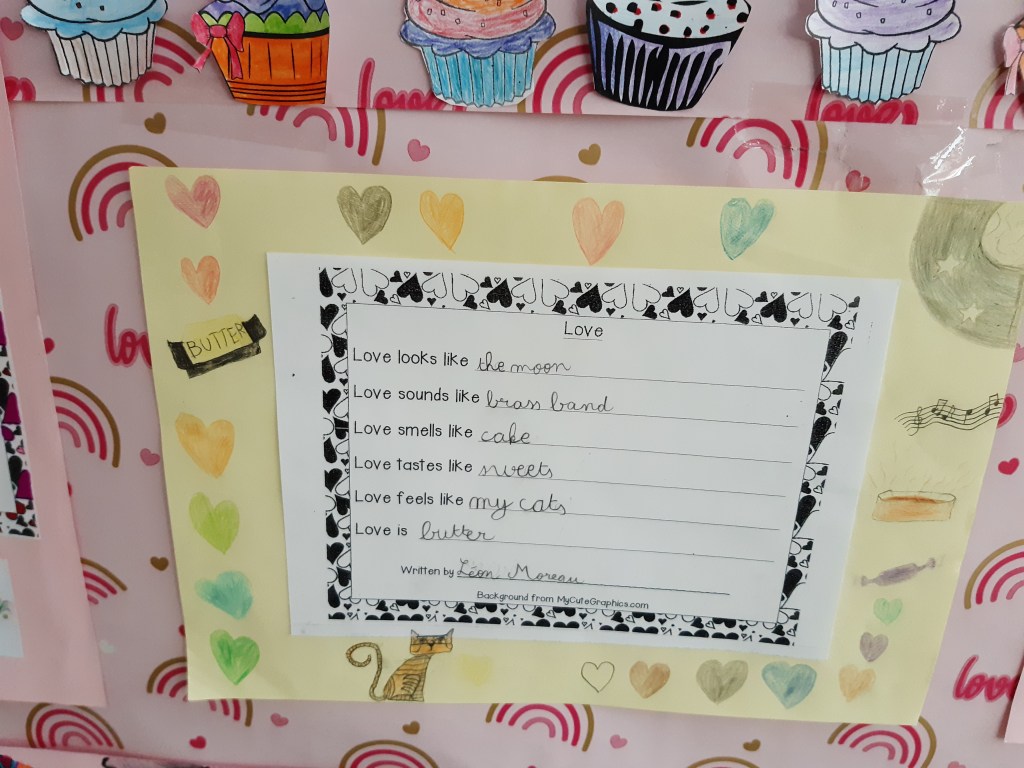 love
love
love
BUTTER
Love
Love looks like the moon
Love sounds like brass band
Love smells like cake
Love tastes like sweets
Love feels like my cats
Love is butter
Written by Léon Moreau
Background from MyCuteGraphics.com
love
love